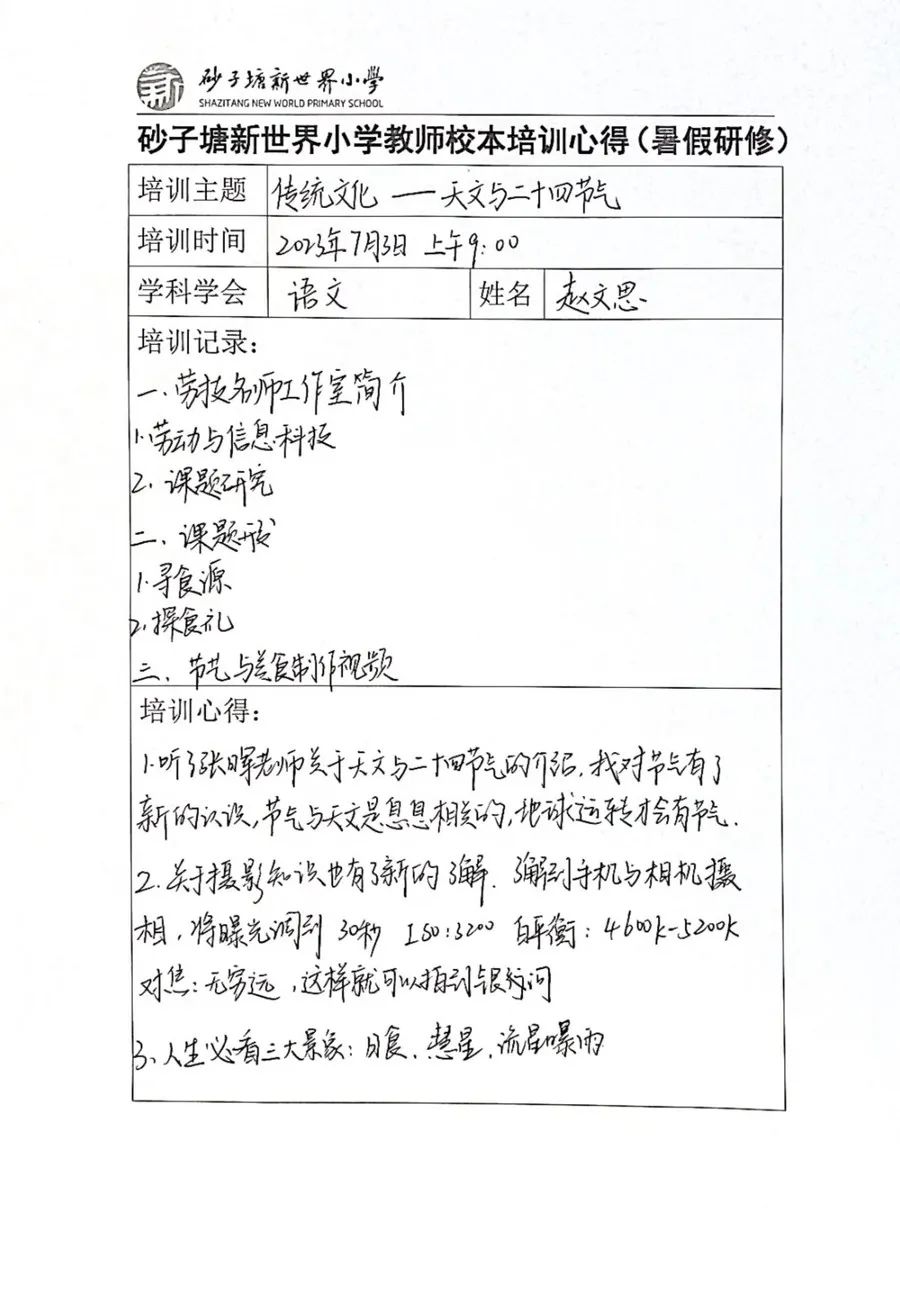 砂子塘新世界小學
SHAZITANG NEW WORLD PRIMARY SCHOOL
砂子塘新世界小学教师校本培训心得（暑假研修）
培训主题 传统文化 —— 天文与二十四节气
培训时间 2023年7月3日 上午9:00
学科学会 语文 姓名 赵文思
培训记录：
一、劳技名师工作室简介
1.劳动与信息科技
2.课题研究
二、课题形
1.寻食源
2.探食礼
三、节气与美食制作视频
培训心得：
1.听了张晖老师关于天文与二十四节气的介绍，我对节气有了
新的认识，节气与天文是息息相关的，地球运转才会有节气.
2.关于摄影知识也有了新的了解.了解到手机与相机摄
相，将曝光调到 30秒 ISO:3200 白平衡：4600k-5200k
对焦：无穷远，这样就可以拍到银河
3、人生必看三大景象：日食、慧星、流星曝雨